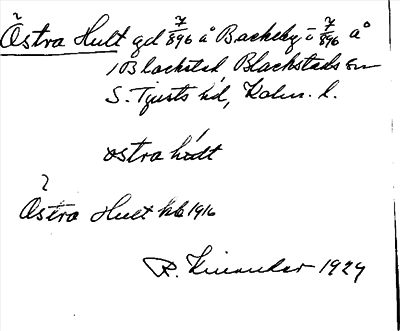 Östra Hult gd 7/896 å Backeby i 7/896 å
i Blackstad, Blackstads sn
S. Tjusts hd, Kalm. l.
östra hùlt
Östra Hult kb 1916
R. Kinander 1929